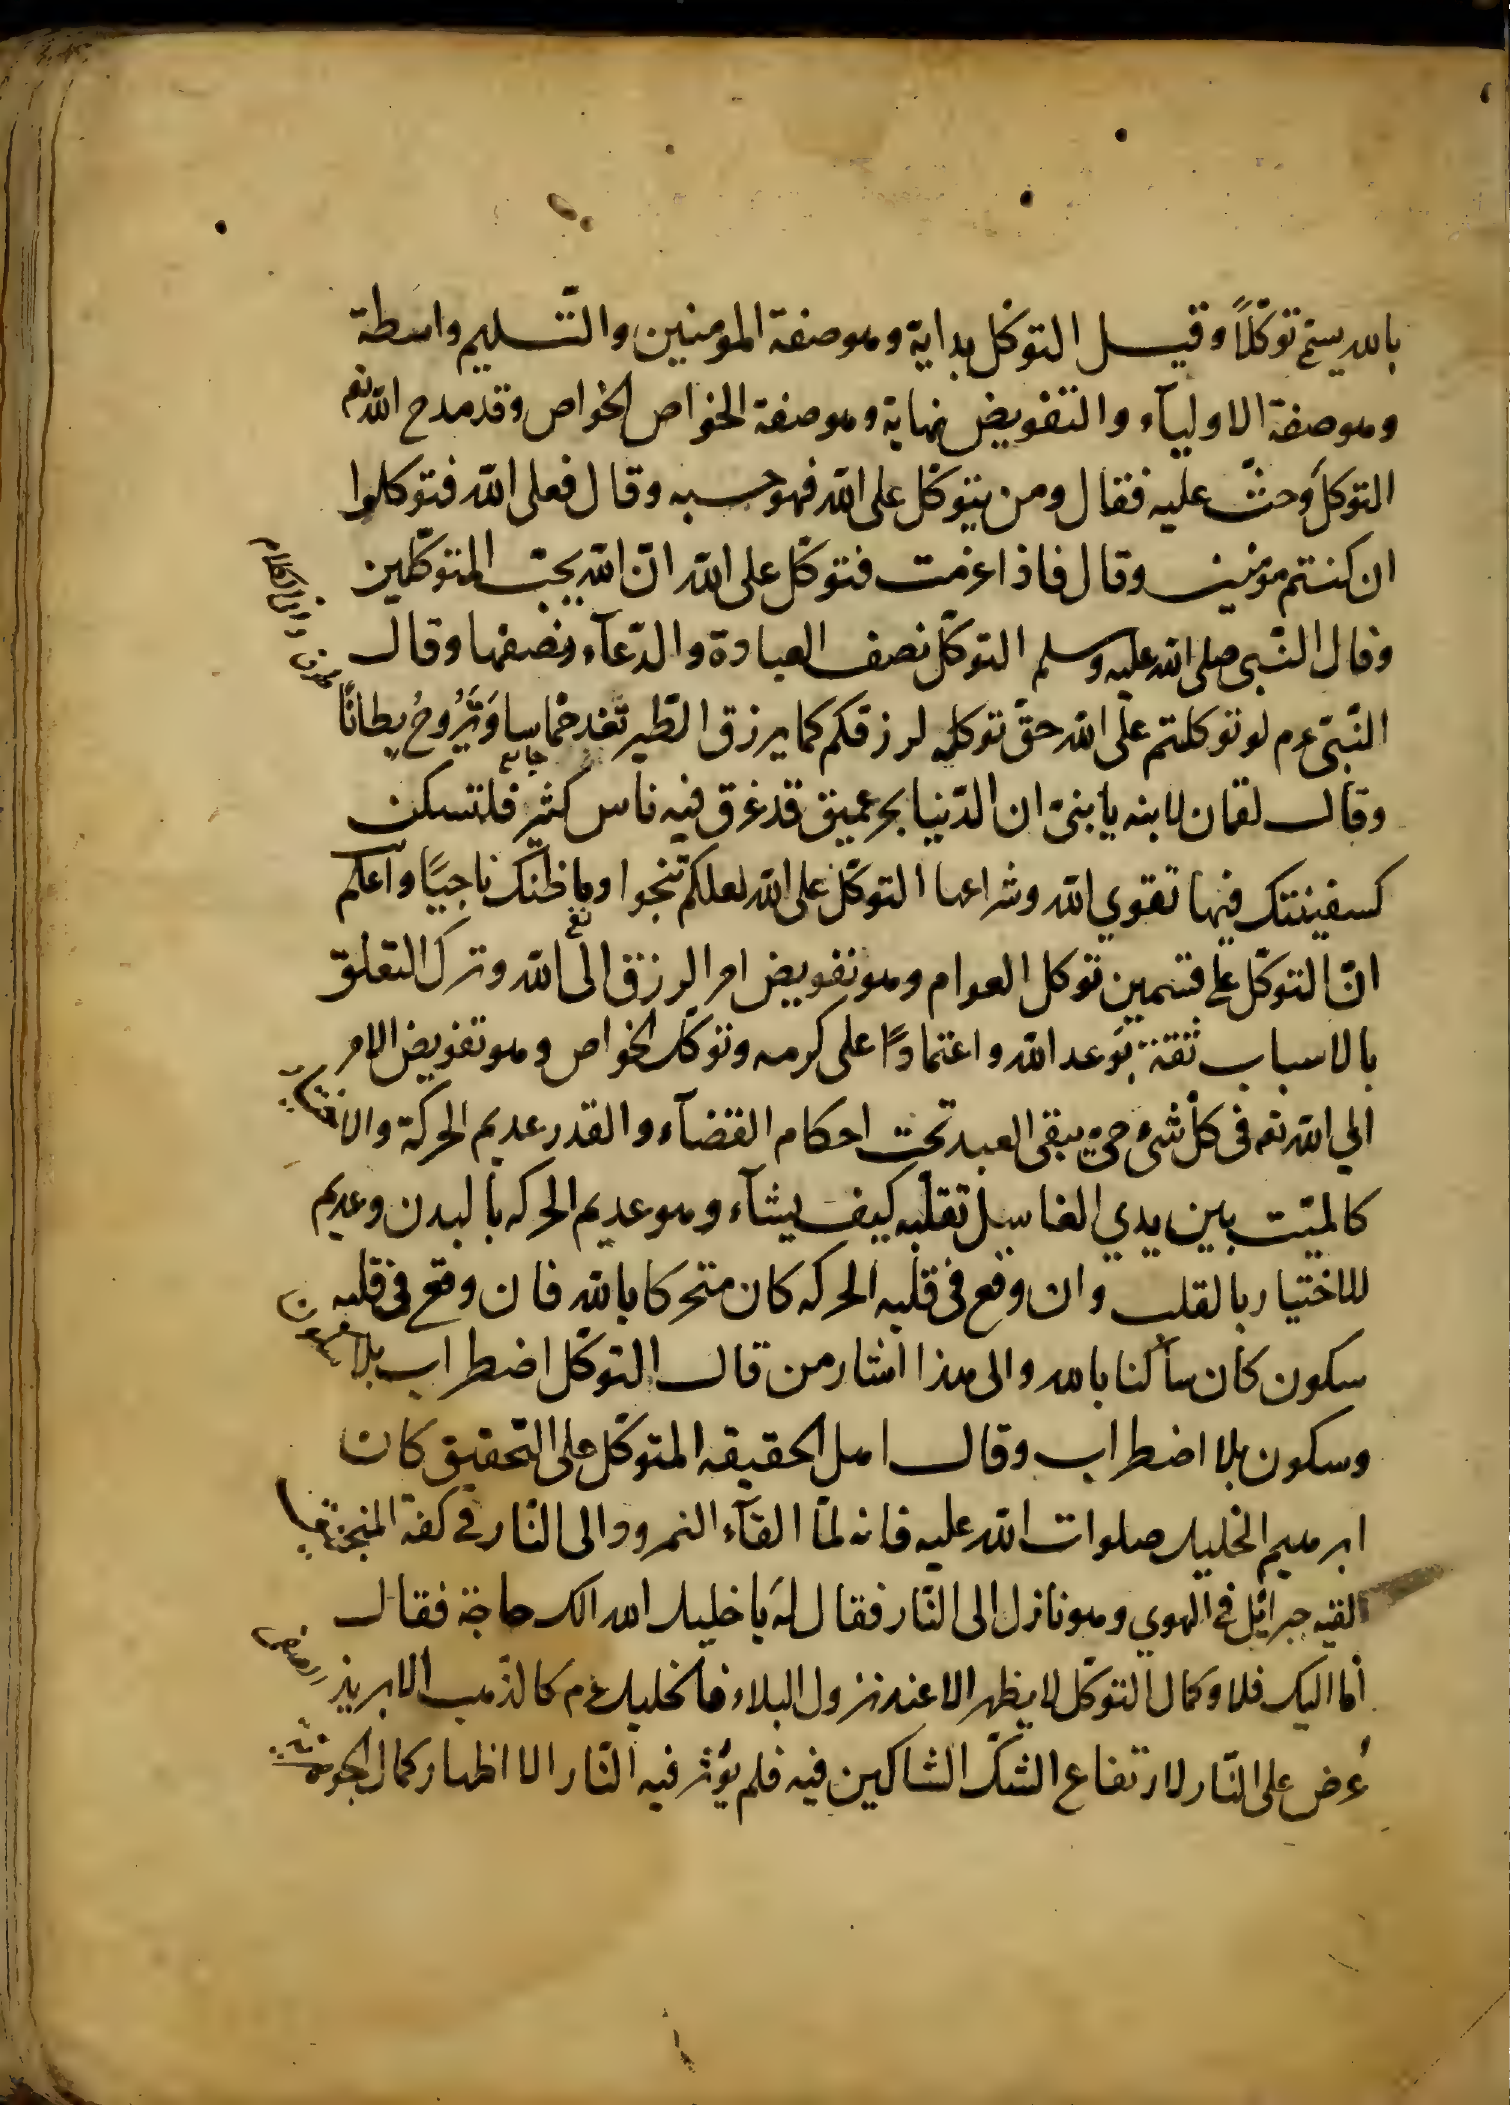 بالله يسمّ توكّلاً وقيل التوكّل بداية وهو صفة المومنين والتّسليم واسطة
وهو صفة الاوليآء والتفويض نهاية وهو صفة الخواص الخواص وقد مدح الله تع
التوكلَ وحثّ عليه فقال ومن يتوكّل على الله فهو حسبه وقال فعلى الله فتوكلوا
ان كنتم مؤمنين وقال فاذا عزمت فتوكّل على الله انّ الله يحبّ المتوكّلين
وقال النّبى صلى الله عليه وسلم التوكّل نصف العبادة والدّعآء نصفها وقال
النّبىّ عم لو توكلتم على الله حقّ توكله لرزقكم كما يرزق الطّير تغد خماسا وَتَرُوحُ بطانًا
جايع
وقال لقمان لابنه يا بنىّ ان الدّنيا بحر عميق قد غرق فيه ناس كثير فلتسكن
كسفينتك فيها تقوي الله وشراعها التوكّل على الله لعلكم تنجوا وما ظنك ناجيًا واعلم
انّ التوكّل على قسمين توكل العوام وهو تفويض امر الرزق الى الله تع وترك التعلق
بالاسباب ثقة بوعد الله واعتمادًا على كرمه وتوكّل الخواص وهو تفويض الامر
الي الله تع فى كلّ شئ حتى يبقى العبد تحت احكام القضآء والقدر عديم الحركة والاختيار
كالميّت بين يدي الغاسل تقلّبه كيف يشآء وهو عديم الحركه بالبدن وعديم
للاختيار بالقلب وان وقع فى قلبه الحركه كان متحركا بالله فان وقع فى قلبه
سكون كان ساكنا بالله والى هذا اشار من قال التوكّل اضطراب بلا سكون
وسكون بلا اضطراب وقال اهل الحقيقه المتوكّل على التّحقيق كان
ابرهيم الخليل صلوات الله عليه فانه لمّا القآء النمرود الى النّار فى كفة المنجنيق
لقيه جبرائيل فى الهوي وهو نازل الى النّار فقال لهَ يا خليل الله الك حاجة فقال
أما اليك فلا وكمال التوكّل لا يظهر الا عند نزول البلاء فالخليل عم كالذّهب الابريز
عُرض على النّار لارتفاع الشكّ الشاكين فيه فلم يؤثر فيه النّار الا اظهار كمال الجوهرية